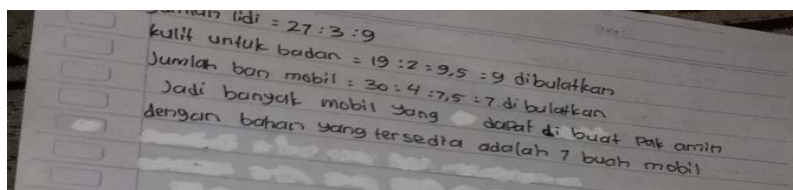 Jumlah lidi = 27 : 3 : 9
kulit untuk badan = 19 : 2 = 9,5 = 9 dibulatkan
Jumlah ban mobil = 30 : 4 : 7,5 : 7 dibulatkan
Jadi banyak mobil yang dapat di buat pak amin
dengan bahan yang tersedia adalah 7 buah mobil